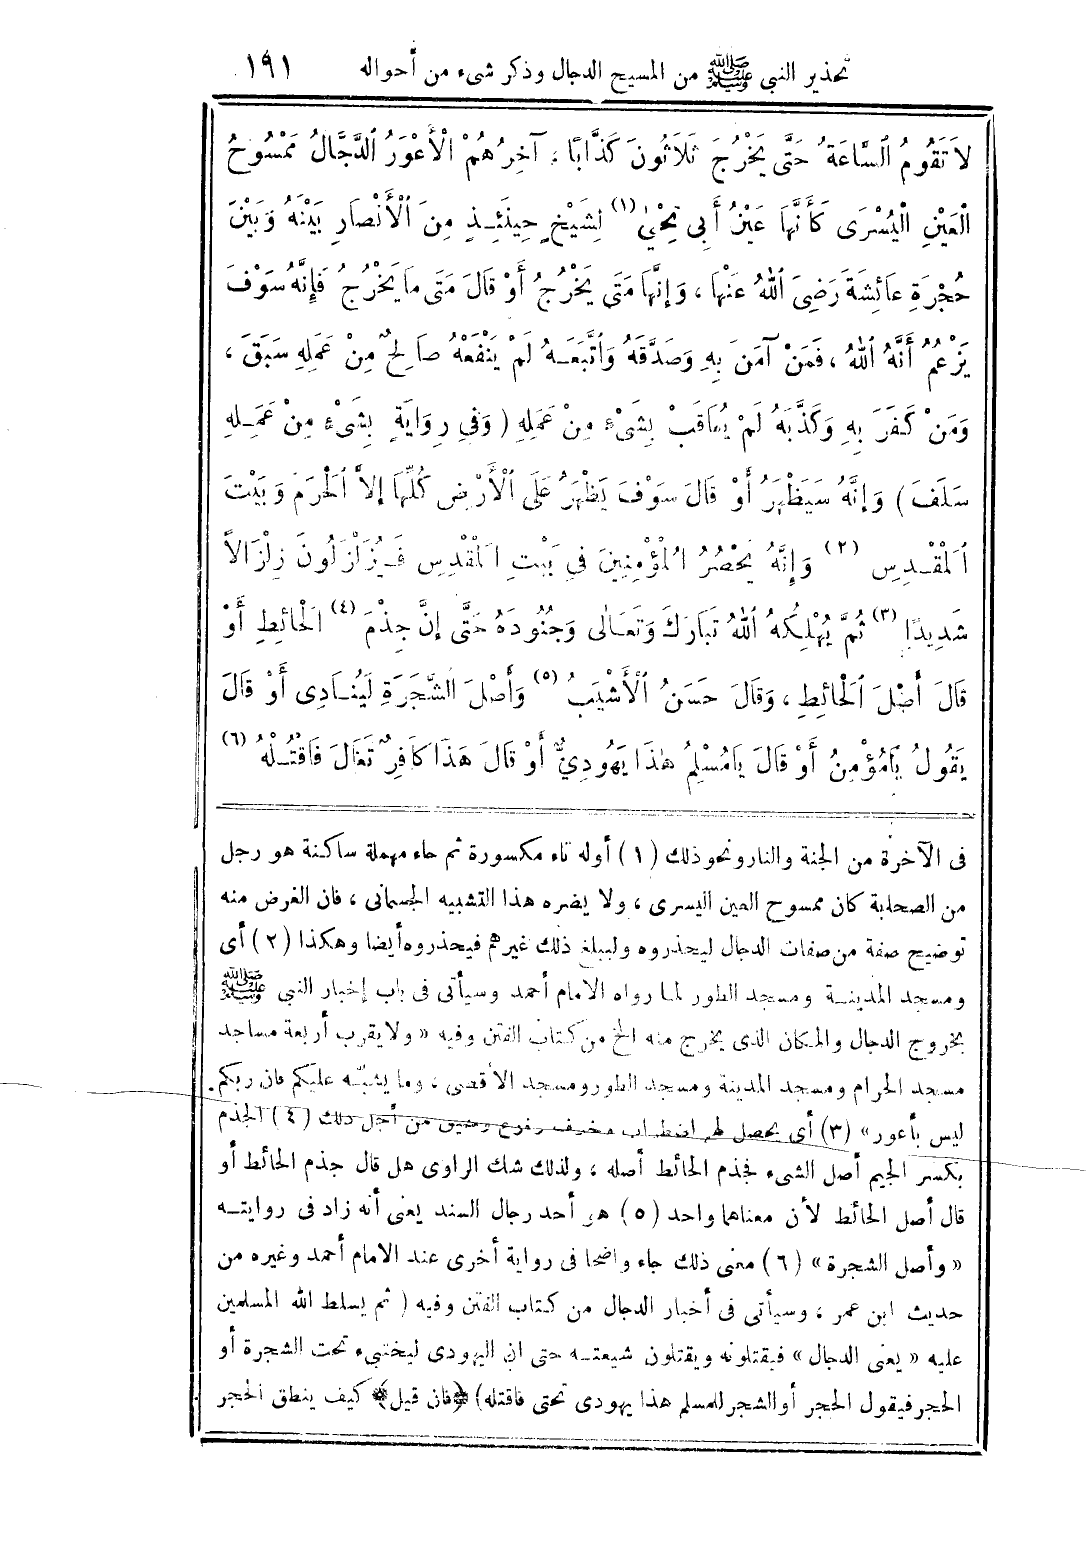 تحذير النبي ﷺ من المسيح الدجال وذكر شىء من أحواله ١٩١
لَا تَقُومُ ٱلسَّاعَةُ حَتَّى يَخْرُجَ ثَلَاثُونَ كَذَّابًا ، آخِرُهُمْ الْأَعْوَرُ ٱلدَّجَّالُ مَمْسُوحُ
الْعَيْنِ الْيُسْرَى كَأَنَّهَا عَيْنُ أَبِي تِحْيٰ (١) لِشَيْخٍ حِينَئِـذٍ مِنَ ٱلْأَنْصَارِ بَيْنَهُ وَبَيْنَ
حُجْرَةِ عَائِشَةَ رَضِىَ ٱللهُ عَنْهَا ، وَإِنَّهَا مَتَى يَخْرُجُ أَوْ قَالَ مَتَى مَا يَخْرُجُ فَإِنَّهُ سَوْفَ
يَزْعُمُ أَنَّهُ ٱللهُ ، فَمَنْ آمَنَ بِهِ وَصَدَّقَهُ وَٱتَّبَعَـهُ لَمْ يَنْفَعْهُ صَالِحٌ مِنْ عَمَلِهِ سَبَقَ ،
وَمَنْ كَفَرَ بِهِ وَكَذَّبَهُ لَمْ يُعَاقَبْ بِشَىْءٍ مِنْ عَمَلِهِ ( وَفِي رِوَايَةٍ بِشَىْءٍ مِنْ عَمَـلِهِ
سَلَفَ ) وَإِنَّهُ سَيَظْهَرُ أَوْ قَالَ سَوْفَ يَظْهَرُ عَلَى ٱلْأَرْضِ كُلِّهَا إِلاَّ ٱلْحَرَمَ وَبَيْتَ
ٱلْمَقْـدِسِ (٢) وَإِنَّهُ يَحْصُرُ الْمُؤْمِنِينَ فِي بَيْتِ الْمَقْدِسِ فَـيُزَلْزَلُونَ زِلْزَالاً
شَدِيدًا (٣) ثُمَّ يُهْلِكُهُ ٱللهُ تَبَارَكَ وَتَعَالَى وَجُنُودَهُ حَتَّى إِنَّ جِذْمَ (٤) الْحَائِطِ أَوْ
قَالَ أَصْلَ ٱلْحَائِطِ ، وَقَالَ حَسَنُ ٱلْأَشْيَبُ (٥) وَأَصْلَ الشَّجَرَةِ لَيُنَـادِى أَوْ قَالَ
يَقُولُ يَامُؤْمِنُ أَوْ قَالَ يَامُسْلِمُ هٰذَا يَهُودِيٌّ أَوْ قَالَ هَذَا كَافِرٌ تَعَالَ فَاقْتُـلْهُ (٦)
فى الآخرة من الجنة والنار ونحو ذلك (١) أوله تاء مكسورة ثم حاء مهملة ساكنة هو رجل
من الصحابة كان ممسوح العين اليسرى ، ولا يضره هذا التشبيه الجسمانى ، فان الغرض منه
توضيح صفة من صفات الدجال ليحذروه وليبلغ ذلك غيرهم فيحذروه أيضا وهكذا (٢) أى
ومسجد المدينـة ومسجد الطور لما رواه الامام أحمد وسيأتى فى باب إخبار النبى ﷺ
بخروج الدجال والمكان الذى يخرج منه الخ من كتاب الفتن وفيه « ولا يقرب أربعة مساجد
مسجد الحرام ومسجد المدينة ومسجد الطور ومسجد الأقصى ، وما يشبّه عليكم فان ربكم
ليس بأعور » (٣) أى يحصل لهم اضطراب مخيف وفزع وضيق من أجل ذلك (٤) الجذم
بكسر الجيم أصل الشىء فجذم الحائط أصله ، ولذلك شك الراوى هل قال جذم الحائط أو
قال أصل الحائط لأن معناهما واحد (٥) هو أحد رجال السند يعنى أنه زاد فى روايتـه
« وأصل الشجرة » (٦) معنى ذلك جاء واضحا فى رواية أخرى عند الامام أحمد وغيره من
حديث ابن عمر ، وسيأتى فى أخبار الدجال من كتاب الفتن وفيه ( ثم يسلط الله المسلمين
عليه « يعنى الدجال » فيقتلونه ويقتلون شيعتـه حتى ان اليهودى ليختبىء تحت الشجرة أو
الحجر فيقول الحجر أو الشجر للمسلم هذا يهودى تحتى فاقتله) ﴿فان قيل﴾ كيف ينطق الحجر